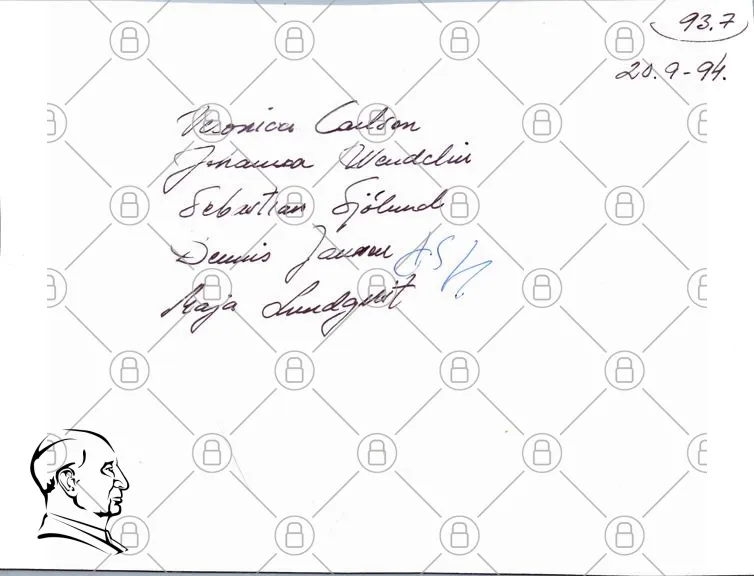 93.7
20.9-94.
Veronica Carlson
Johanna Wendelin
Sebastian Sjölund
Dennis Jansson
Maja Lundquist